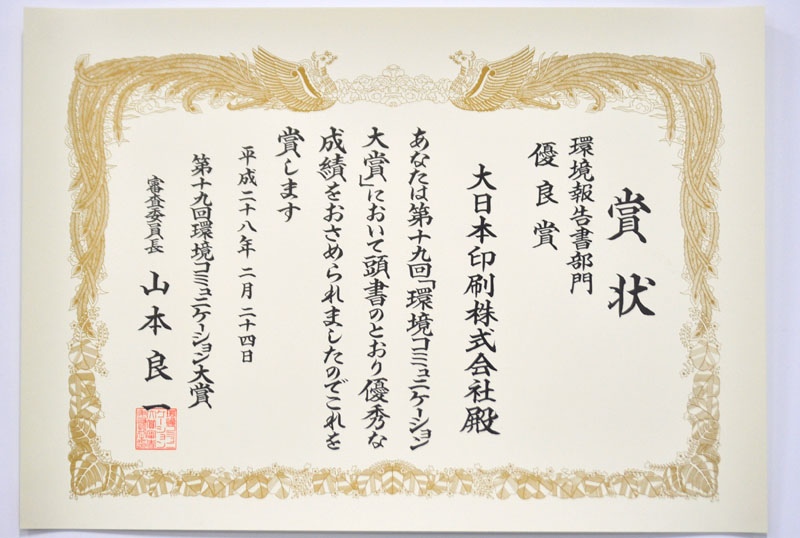 賞状
環境報告書部門
優良賞
大日本印刷株式会社殿
あなたは第十九回「環境コミュニケーション
大賞」において頭書のとおり優秀な
成績をおさめられましたのでこれを
賞します
平成二十八年 二月 二十四日
第十九回環境コミュニケーション大賞
審査委員長 山本良一